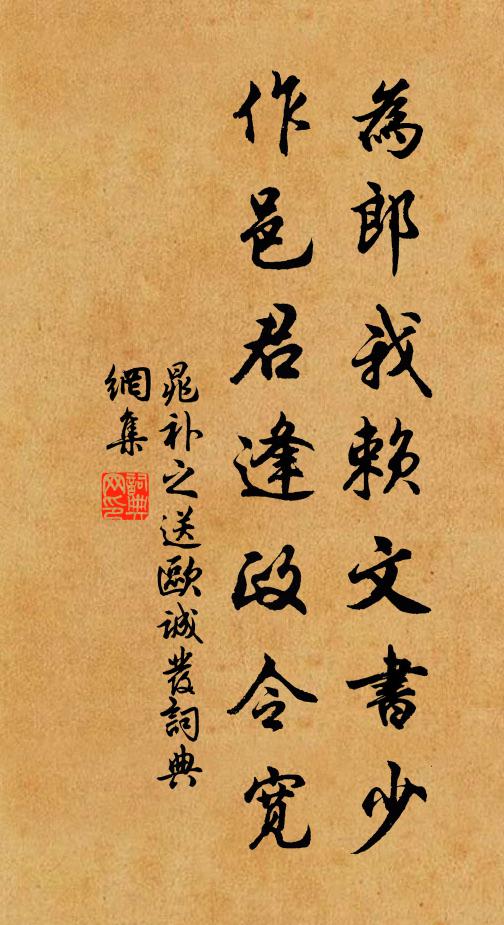 為郎我賴文書少
作邑君逢政令寬
晁補之送歐誠發詞典
網集
詞典
网印